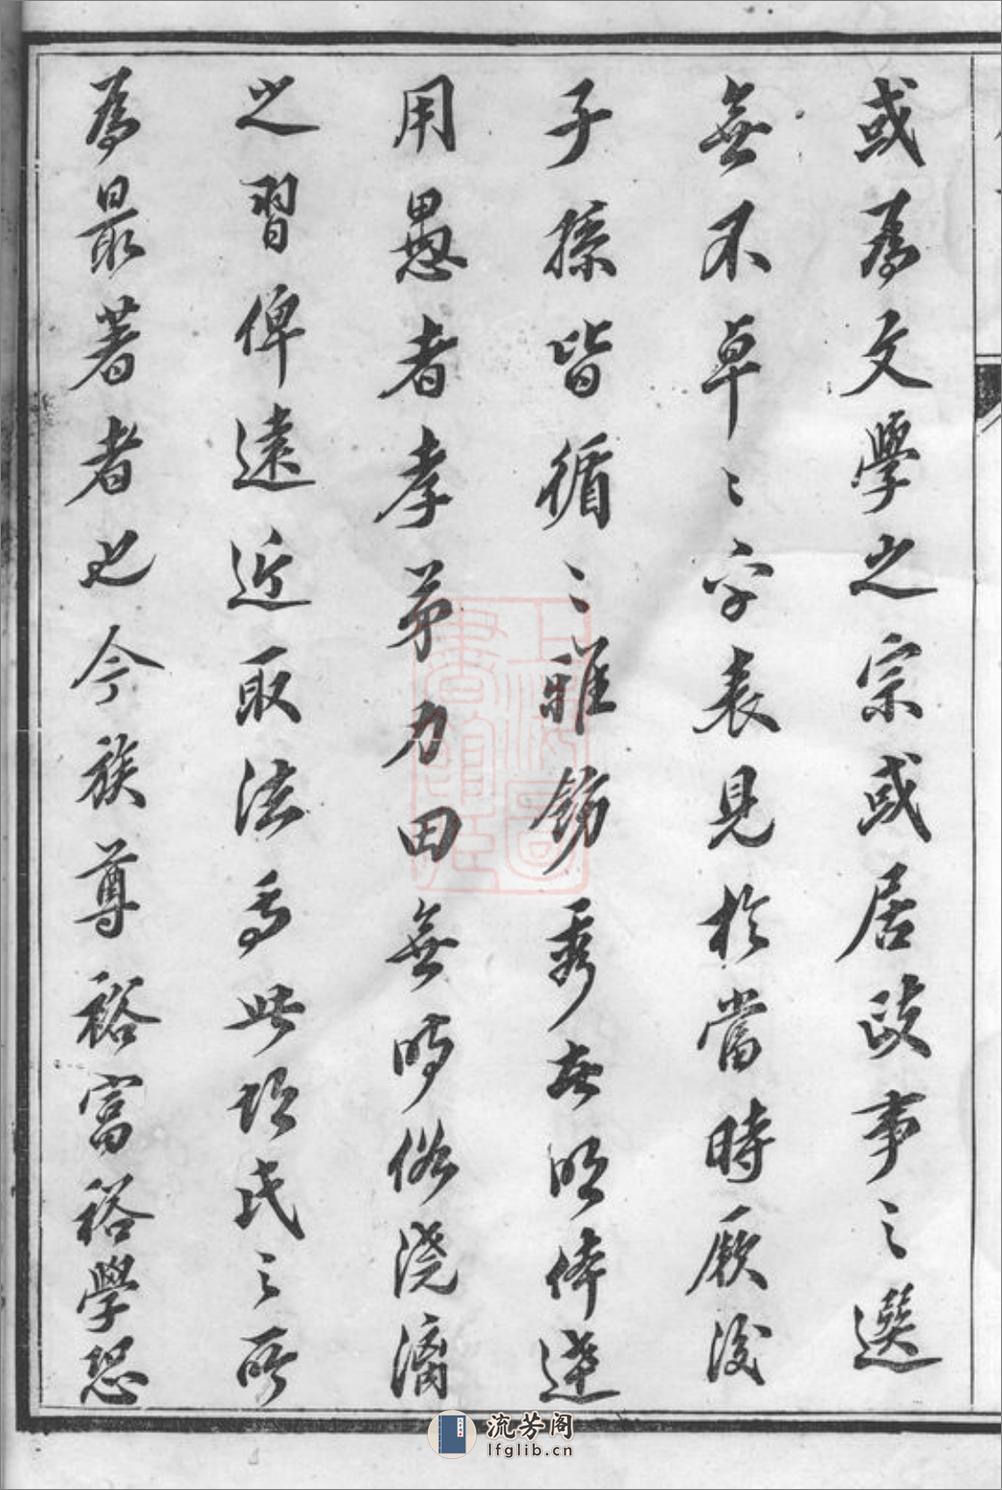 或為文學之宗或居政事之選
無不卓〻字表見於當時厥後
子孫皆循〻雅飭秀者明体達
用愚者孝弟力田無時俗澆漓
之習俾遠近取法焉此項氏之所
為最著者也今族尊裕富裕學恐
上海圖書館藏
流芳阁
lfglib.cn